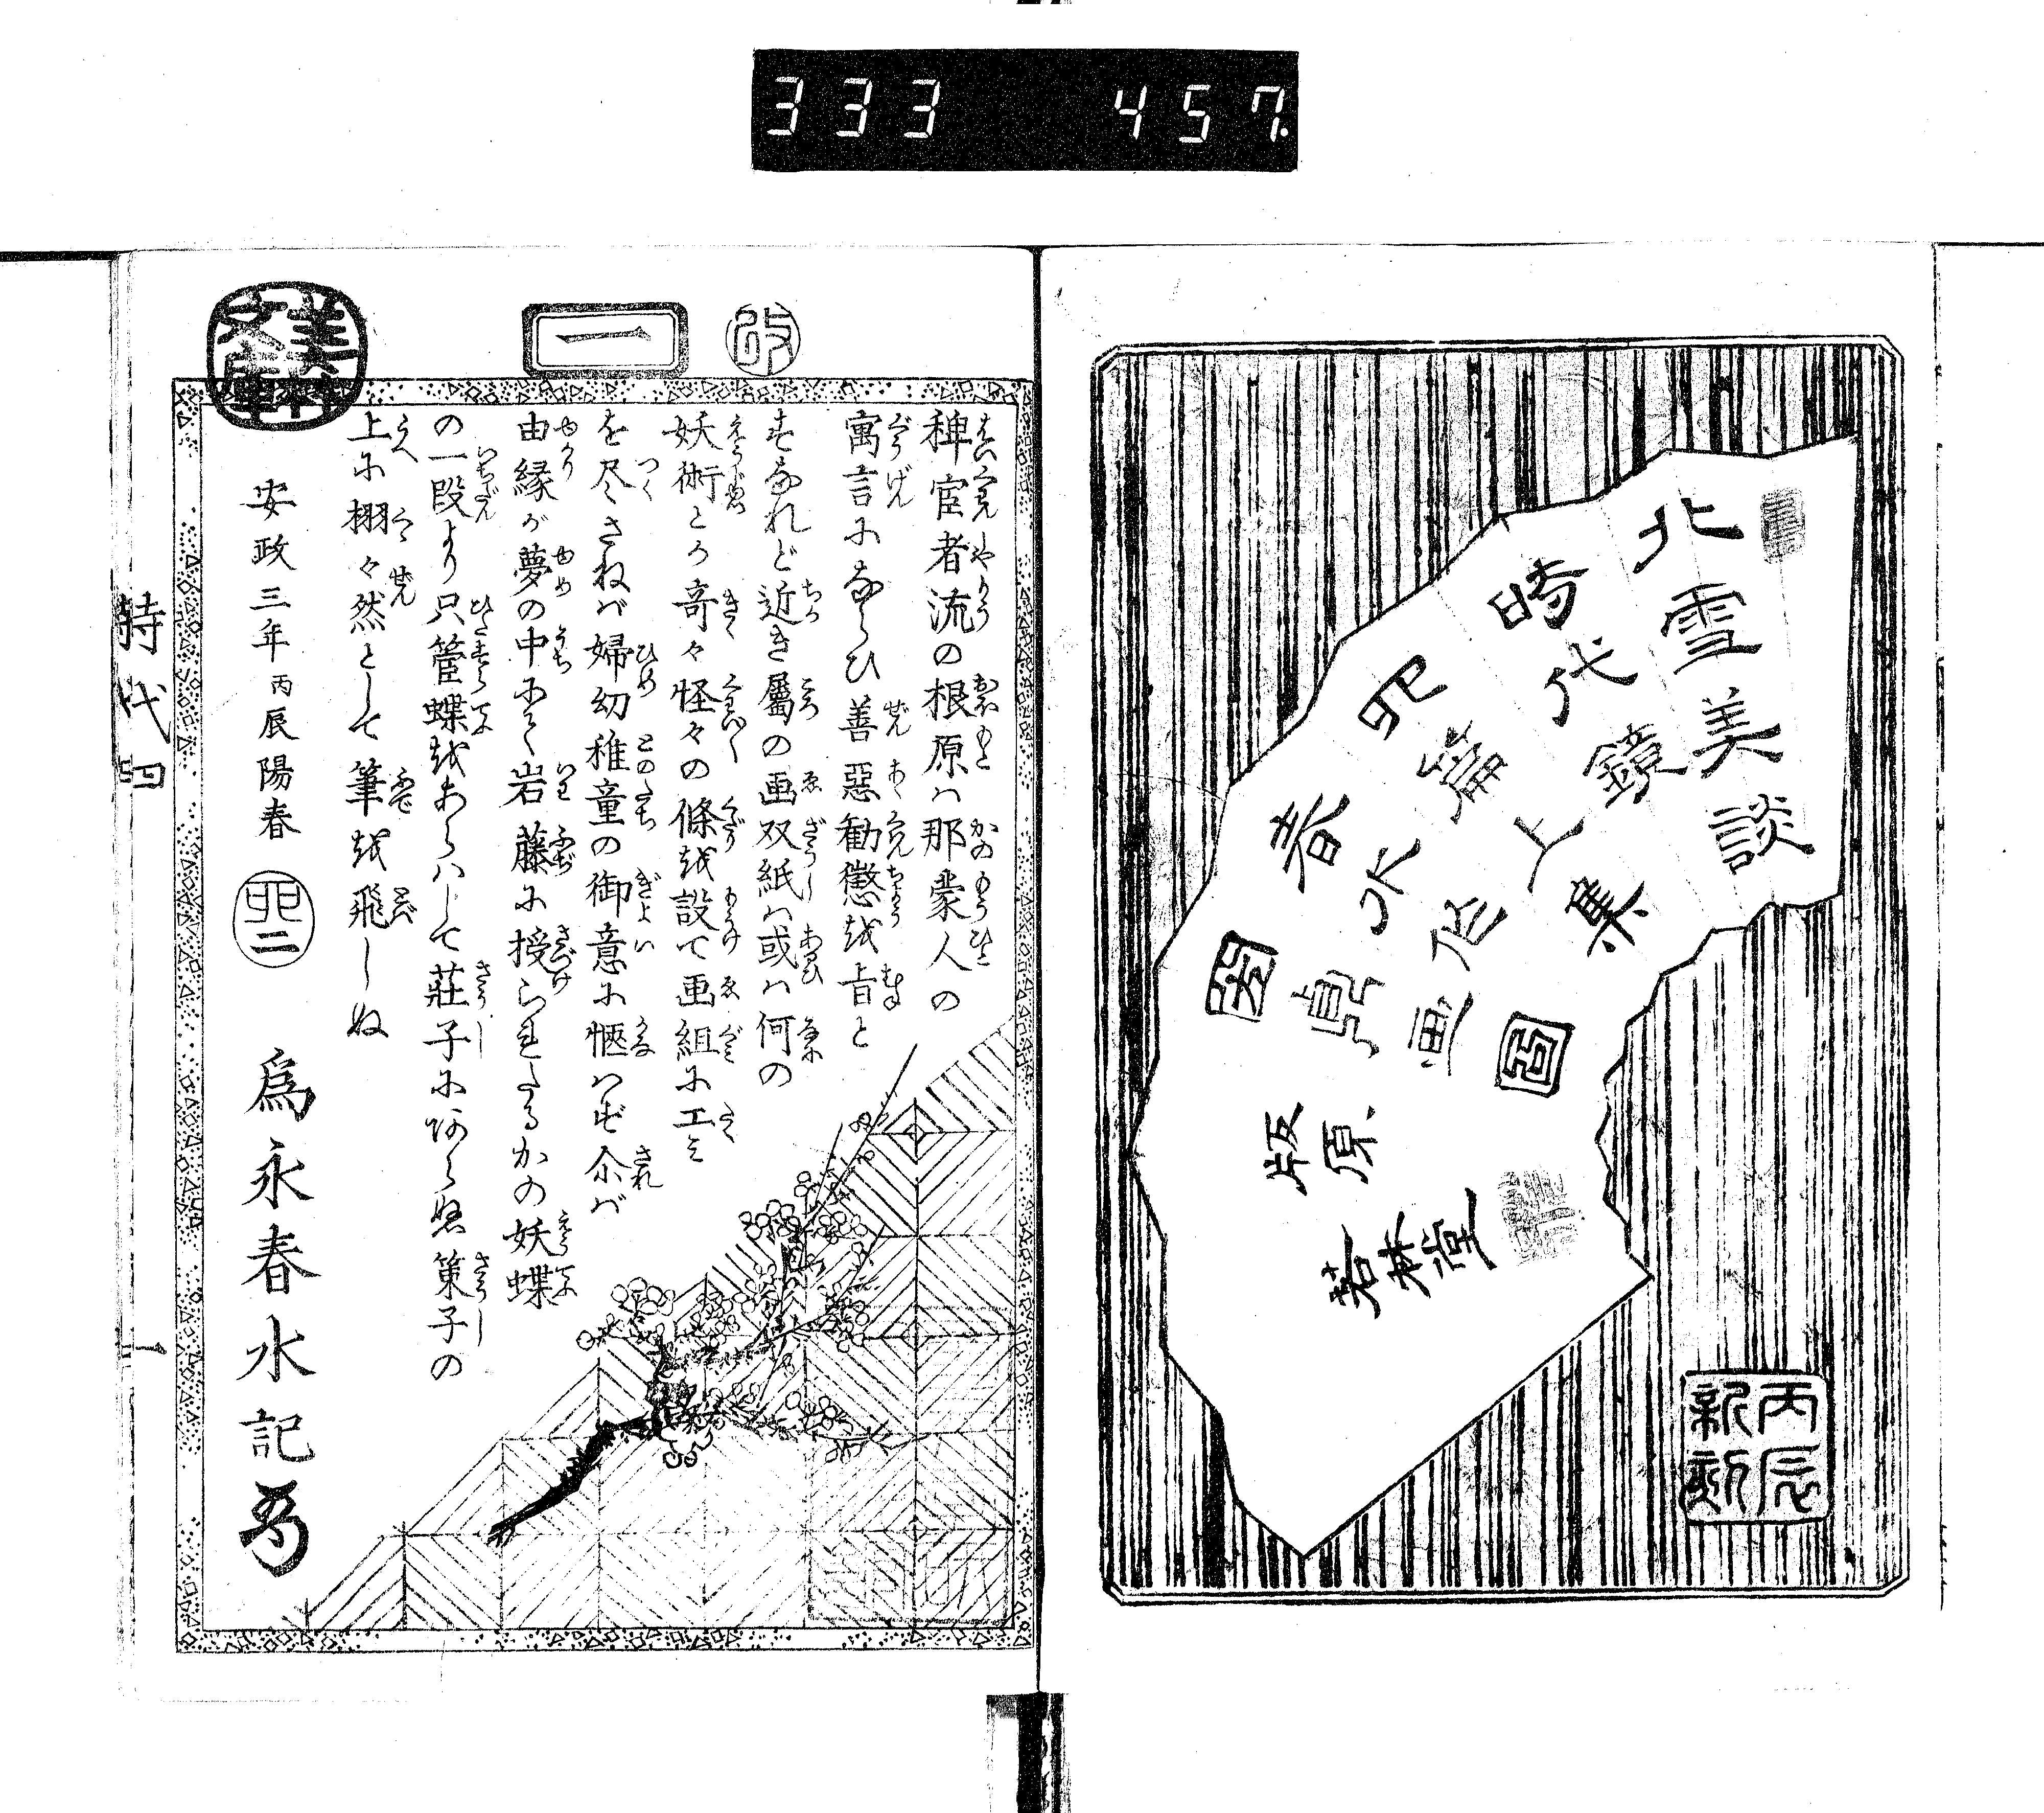 333 457
北雪美談
時代鏡上集
四篇
春水作
国芳画
版原
若林堂
丙辰
新刻
改
一
稗官者流の根原ハ那蒙人の
寓言にならひ善惡勧懲を旨と
すなれど近き屬の画双紙ハ或ハ何の
妖術とか奇々怪々の條を設て画組に工ミ
を尽くさねバ婦幼稚童の御意に愜ハず尒バ
由縁が夢の中にて岩藤に授られたるかの妖蝶
の一段より只管蝶をあらハして莊子にあらぬ策子の
上に栩々然として筆を飛しぬ
安政三年丙辰陽春
爲永春水記
時代四
一